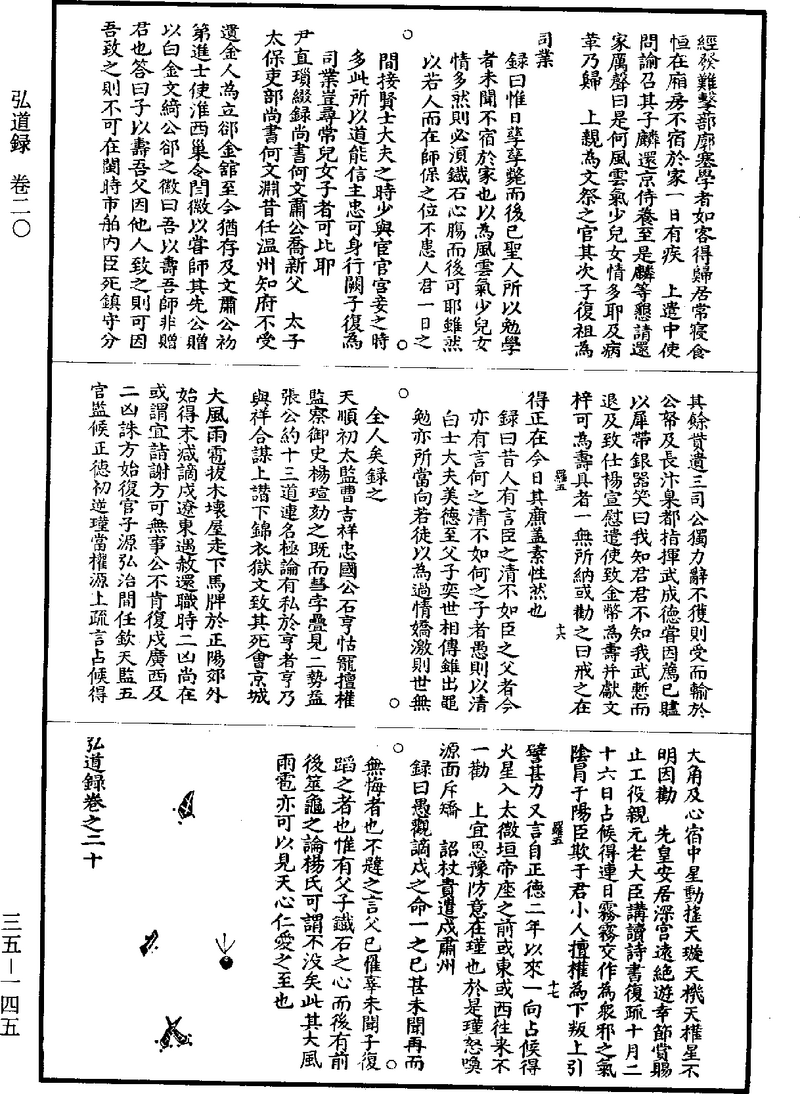 弘道録 卷二〇
三五—一四五
經發難擊蔀廓塞學者如客得歸居常寢食
恒在廂房不宿於家一日有疾 上遣中使
問諭召其子麟還京侍養至是麟等懇請還
家厲聲曰是何風雲氣少兒女情多耶及病
革乃歸 上親為文祭之官其次子復祖為
司業
録曰惟日孳孳斃而後已聖人所以勉學
者未聞不宿於家也以為風雲氣少兒女
情多然則必湏鐵石心腸而後可耶雖然
以若人而在師保之位不患人君一日之
間接賢士大夫之時少與宦官宮妾之時
多此所以道能信主忠可身行闕子復為
司業豈尋常兒女子者可比耶
尹直瑣綴録尚書何文肅公喬新父 太子
太保吏部尚書何文淵昔任温州知府不受
遺金人為立郤金舘至今猶存及文肅公初
第進士使淮西巢令閆徽以嘗師其先公贈
以白金文綺公郤之徽曰吾以壽吾師非贈
君也答曰子以壽吾父因他人致之則可因
吾致之則不可在閩時市舶内臣死鎮守分
其餘貲遺三司公獨力辭不獲則受而輸於
公帑及長汴臬都指揮武成德嘗因薦已贐
以犀帶銀器笑曰我知君君不知我武慙而
退及致仕楊宣慰遣使致金幣為壽并獻文
梓可為壽具者一無所納或勸之曰戒之在
得正在今日其㢘盖素性然也
羅五
十六
録曰昔人有言臣之清不如臣之父者今
亦有言何之清不如何之子者愚則以清
白士大夫美德至父子奕世相傳錐出黽
勉亦所當向若徒以為過情嬌激則世無
全人矣録之
天順初太監曹吉祥忠國公石亨怙寵擅權
監察御史楊瑄劾之既而彗孛疊見二勢益
張公約十三道連名極論有私於亨者亨乃
與祥合謀上譖下錦衣獄文致其死會京城
大風雨雹拔木壞屋走下馬牌於正陽郊外
始得末减謫戍遼東遇赦還職時二凶尚在
或謂宜請謝方可無事公不肯復戍廣西及
二凶誅方始復官子源弘治間任欽天監五
官監候正德初逆瑾當權源上疏言占候得
大角及心宿中星動搖天璇天機天權星不
明因勸 先皇安居深宫遠絶遊幸節賞賜
止工役親元老大臣講讀詩書復疏十月二
十六日占候得連日霧霧交作為衆邪之氣
陰冒于陽臣欺于君小人擅權為下叛上引
譬甚力又言自正德二年以來一向占候得
羅五
十七
火星入太微垣帝座之前或東或西往来不
一勸 上宜思豫防意在瑾也於是瑾怒喚
源面斥矯 詔杖責遣戍肅州
録曰愚觀謫戍之命一之已甚未聞再而
無悔者也不韙之言父已罹辜未聞子復
蹈之者也惟有父子鐵石之心而後有前
後筮龜之論楊氏可謂不没矣此其大風
雨雹亦可以見天心仁愛之至也
弘道録卷之二十